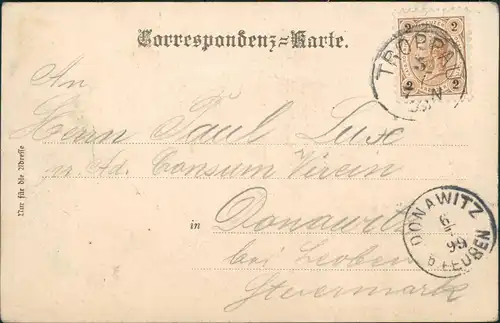 Correspondenz=Karte.
2 2
2 2
TROPPAU
5
An
Herrn Paul Lux
pr. Ad. Consum Verein
in Donawitz
bei Leoben
Steiermark
DONAWITZ
6
99
b. LEOBEN
Nur für die Adresse